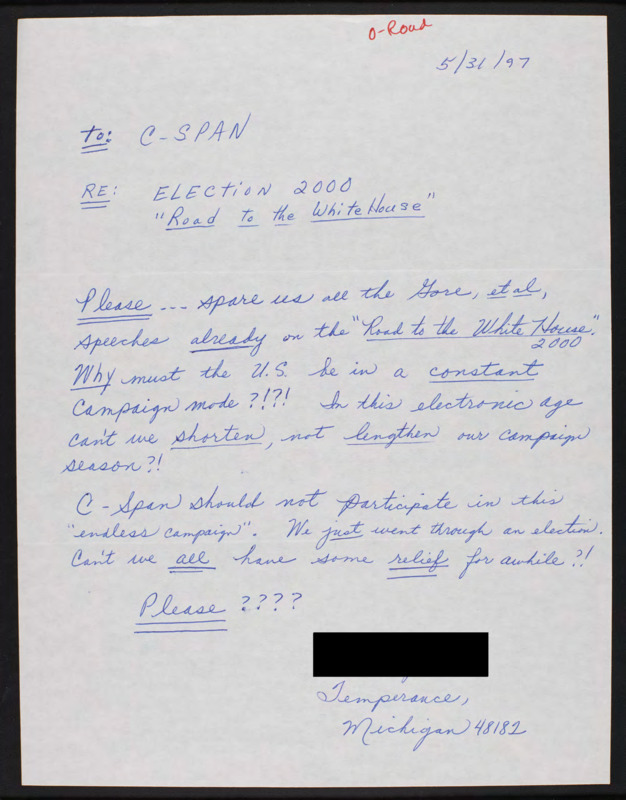 O-Road
5/31/97
To: C-SPAN
RE: ELECTION 2000
"Road to the White House"
Please --- spare us all the Gore, et al,
speeches already on the "Road to the White House."
2000
Why must the U.S. be in a constant
campaign mode?!?! In this electronic age
can't we shorten, not lengthen our campaign
season?!
C-Span should not participate in this
"endless campaign". We just went through an election.
Can't we all have some relief for awhile?!
Please ????
Temperance,
Michigan 48182